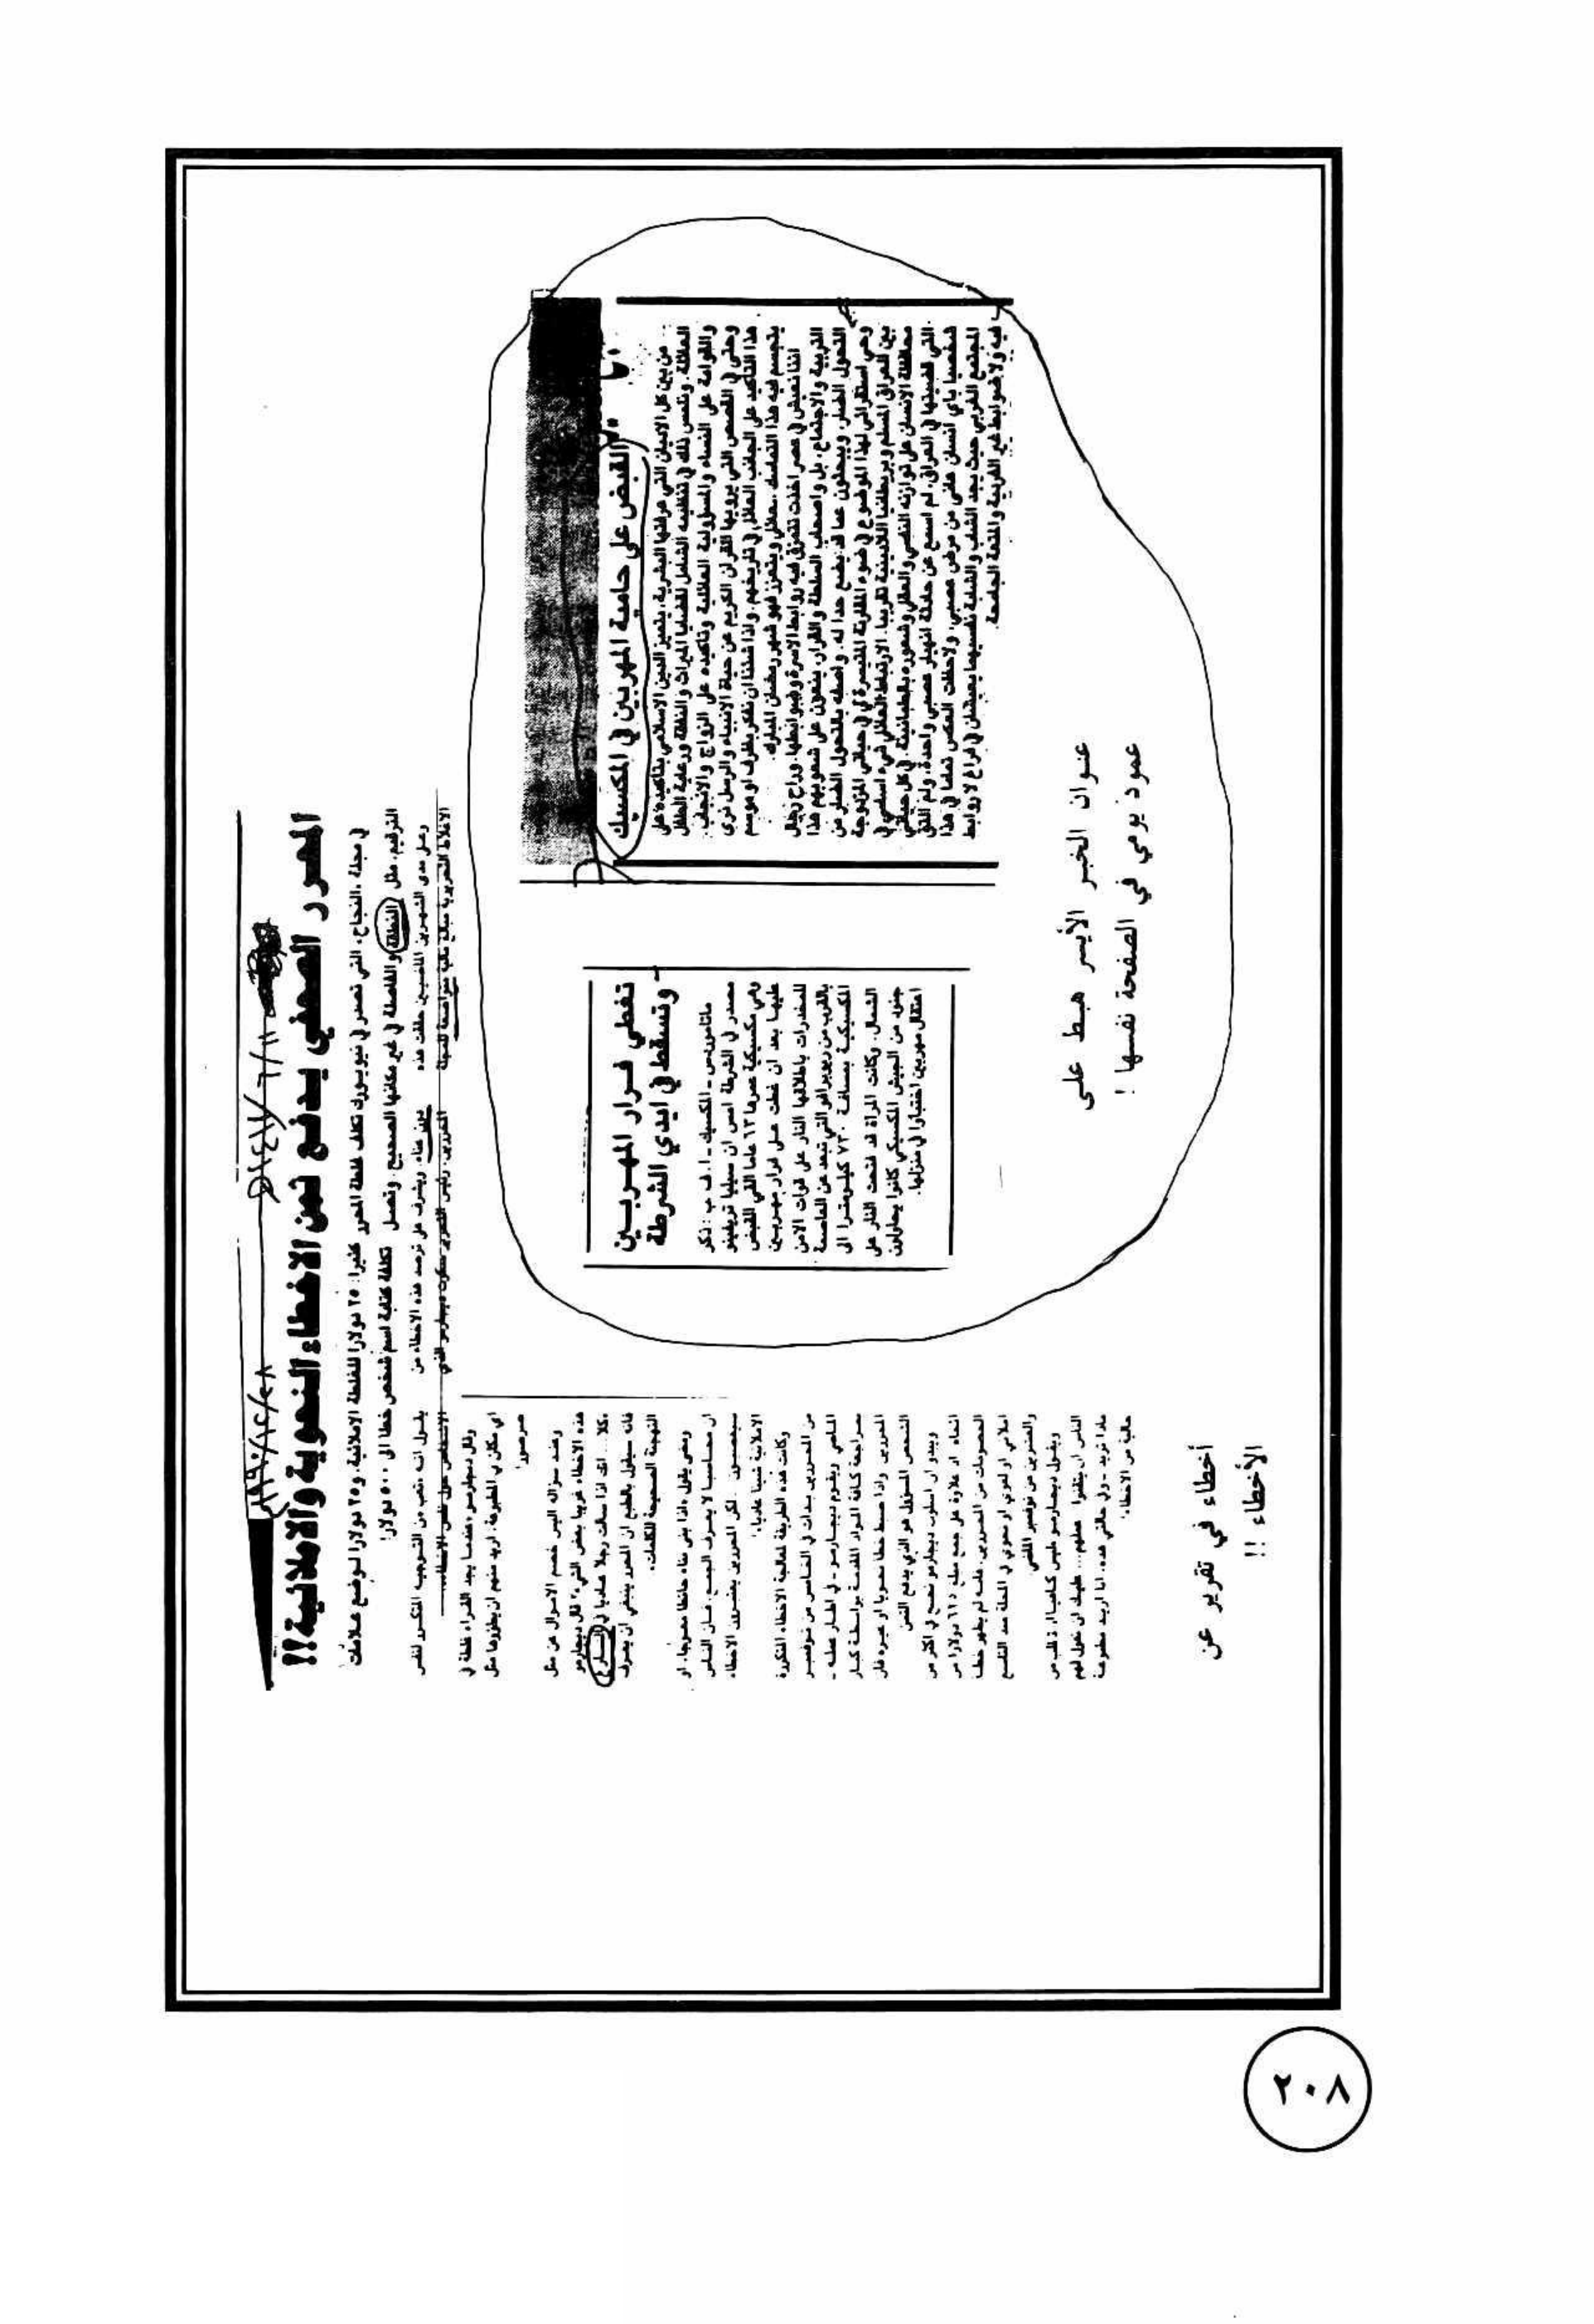 المحرر الصحفي يدفع ثمن الاخطاء النحوية والاملائية!!
في مجلة «النجاح» التي تصدر في نيويورك تكلف غلطة المحرر كثيرا: ٢٥ دولارا للغلطة الاملائية، و٢٥ دولارا لوضع علامات
الترقيم، مثل النقطة والفاصلة في غير مكانها الصحيح. وتصل تكلفة كتابة اسم شخص خطأ الى ٥٠٠ دولار!
وعلى مدى الشهرين الماضيين حققت هذه
الاغلاط التحريرية مبالغ مالية متواضعة للمجلة
دون عناء. ويشرف على ترصد هذه الاخطاء من
المحررين رئيس التحرير سكوت ديجارمو الذي
يقول انه «تعب من التوجيه المتكرر لنفس
الاشخاص حول نفس الاخطاء».
وقال ديجارمو «عندما يجد القراء غلطة في
اي مكان في المطبوعة، اريد منهم ان يطاردوها مثل
صرصور»
وعند سؤاله اليس خصم الاموال عن مثل
هذه الاخطاء غريبا بعض الشيء؟ قال ديجارمو
«كلا... انك اذا سألت رجلا عاديا في الشارع
فانه سيقول بالطبع ان المحرر ينبغي ان يعرف
التهجئة الصحيحة للكلمات».
ومضى يقول «اذا بنى بناء حائطا معوجا، او
ان محاسبا لا يعرف الجمع، فان الناس
سيغضبون. لكن المحررين يعتبرون الاخطاء
الاملائية شيئا عاديا».
وكانت هذه الطريقة لمعالجة الاخطاء المتكررة
من المحررين بدأت في الخامس من نوفمبر
الماضي ويقوم ديجارمو - في اطار عمله -
بمراجعة كافة المواد المقدمة بواسطة كبار
المحررين واذا ضبط خطأ نحويا او غيره فان
الشخص المسؤول هو الذي يدفع الثمن
ويبدو ان اسلوب ديجارمو نجح في اكثر من
اتجاه اذ علاوة على جمع مبلغ ٦١٥ دولارا من
الخصومات من المحررين، فانه لم يظهر خطأ
املائي او لغوي او نحوي في المجلة منذ التاسع
والعشرين من نوفمبر الماضي
ويقول ديجارمو «ليس كافيا ان تطلب من
الناس ان يتقنوا عملهم... عليك ان تقول لهم
ماذا تريد - وفي حالتي هذه، انا اريد مطبوعة
خالية من الاخطاء».
أخطاء في تقرير عن
الأخطاء !!
تغطي فرار المهربين
وتسقط في ايدي الشرطة
ماتاموروس - المكسيك - ا. ف. ب: ذكر
مصدر في الشرطة امس ان سيليا تريفينو
وهي مكسيكية عمرها ٦٣ عاما القي القبض
عليها بعد ان غطت على فرار مهربين
للمخدرات باطلاقها النار على قوات الامن
بالقرب من ريوبرافو التي تبعد عن العاصمة
المكسيكية بمسافة ٧٣٠ كيلومترا الى
الشمال. وكانت المرأة قد فتحت النار على
جنود من الجيش المكسيكي كانوا يحاولون
اعتقال مهربين اختبأوا في منزلها.
القبض على حامية المهربين في المكسيك
من بين كل الاديان التي عرفتها البشرية، يتميز الدين الاسلامي بتأكيده على
العائلة. ونلمس ذلك في تنظيمه الشامل لقضايا الميراث والنفقة ورعاية الطفل
والقوامة على النساء والمسؤولية العائلية وتأكيده على الزواج والانجاب.
وحتى في القصص التي يرويها القرآن الكريم عن حياة الانبياء والرسل نرى
هذا التأكيد على الجانب العائلي في تاريخهم. واذا شئنا ان نفكر بظرف او موسم
يتجسم فيه هذا التماسك العائلي ويتعزز فهو شهر رمضان المبارك.
اننا نعيش في عصر اخذت تتمزق فيه روابط الاسرة وضوابطها. وراح رجال
التربية والاجتماع، بل واصحاب السلطة والقرار، ينعون على شعوبهم هذا
التحول الضار، ويبحثون عما قد يضع حدا له. واصفه بالتحول الضار عن
وعي استقرائي لهذا الموضوع في ضوء المقارنة المتيسرة لي في حياتي المزدوجة
بين العراق المسلم وبريطانيا اللادينية تقريبا. الارتباط العائلي شيء اساسي في
محافظة الانسان على توازنه النفسي والعقلي وشعوره بالطمأنينة. في كل حياتي
التي قضيتها في العراق، لم اسمع عن حادثة انهيار عصبي واحدة، ولم التق
شخصيا باي انسان عانى من مرض عصبي. ولاحظت العكس تماما في هذا
المجتمع الغربي حيث يجد الشاب والشابة نفسيهما يعيشان في فراغ لا روابط
فيه ولا ضوابط غير الغريزة والمتعة الجامحة.
عنوان الخبر الأيسر هبط على
عمود يومي في الصفحة نفسها !
٢٠٨